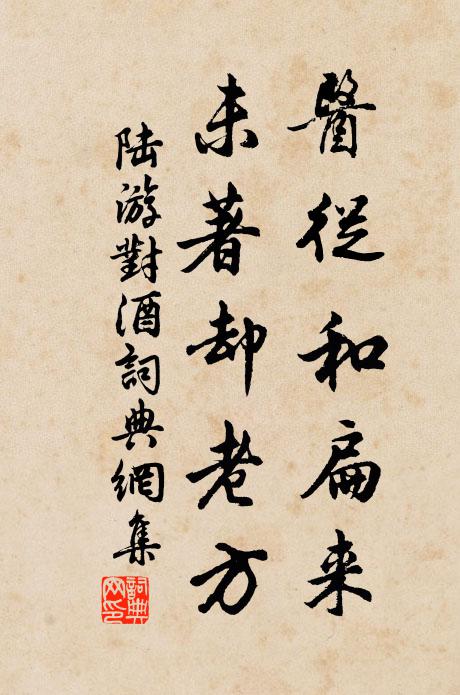 醫從和扁来
未著却老方
陸游對酒詞典網集
詞典网印